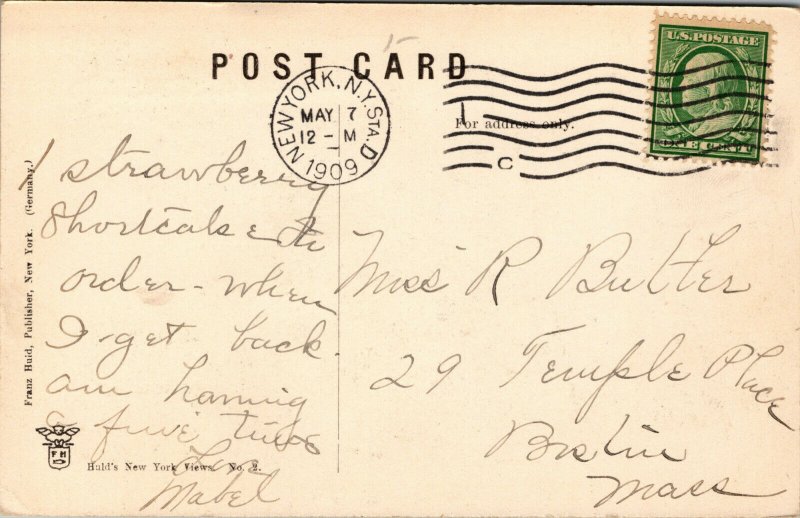 POST CARD
NEW YORK, N.Y. STA. D
MAY 7
12 - M
1909
C
U.S. POSTAGE
ONE CENT
For address only.
1 strawberry
Shortcake to
order - when
I get back.
am having
a fine time
Love
Mabel
Miss R Butler
29 Temple Place
Boston
Mass
Franz Huld, Publisher, New York. (Germany.)
F H
Huld's New York Views. No. 2.